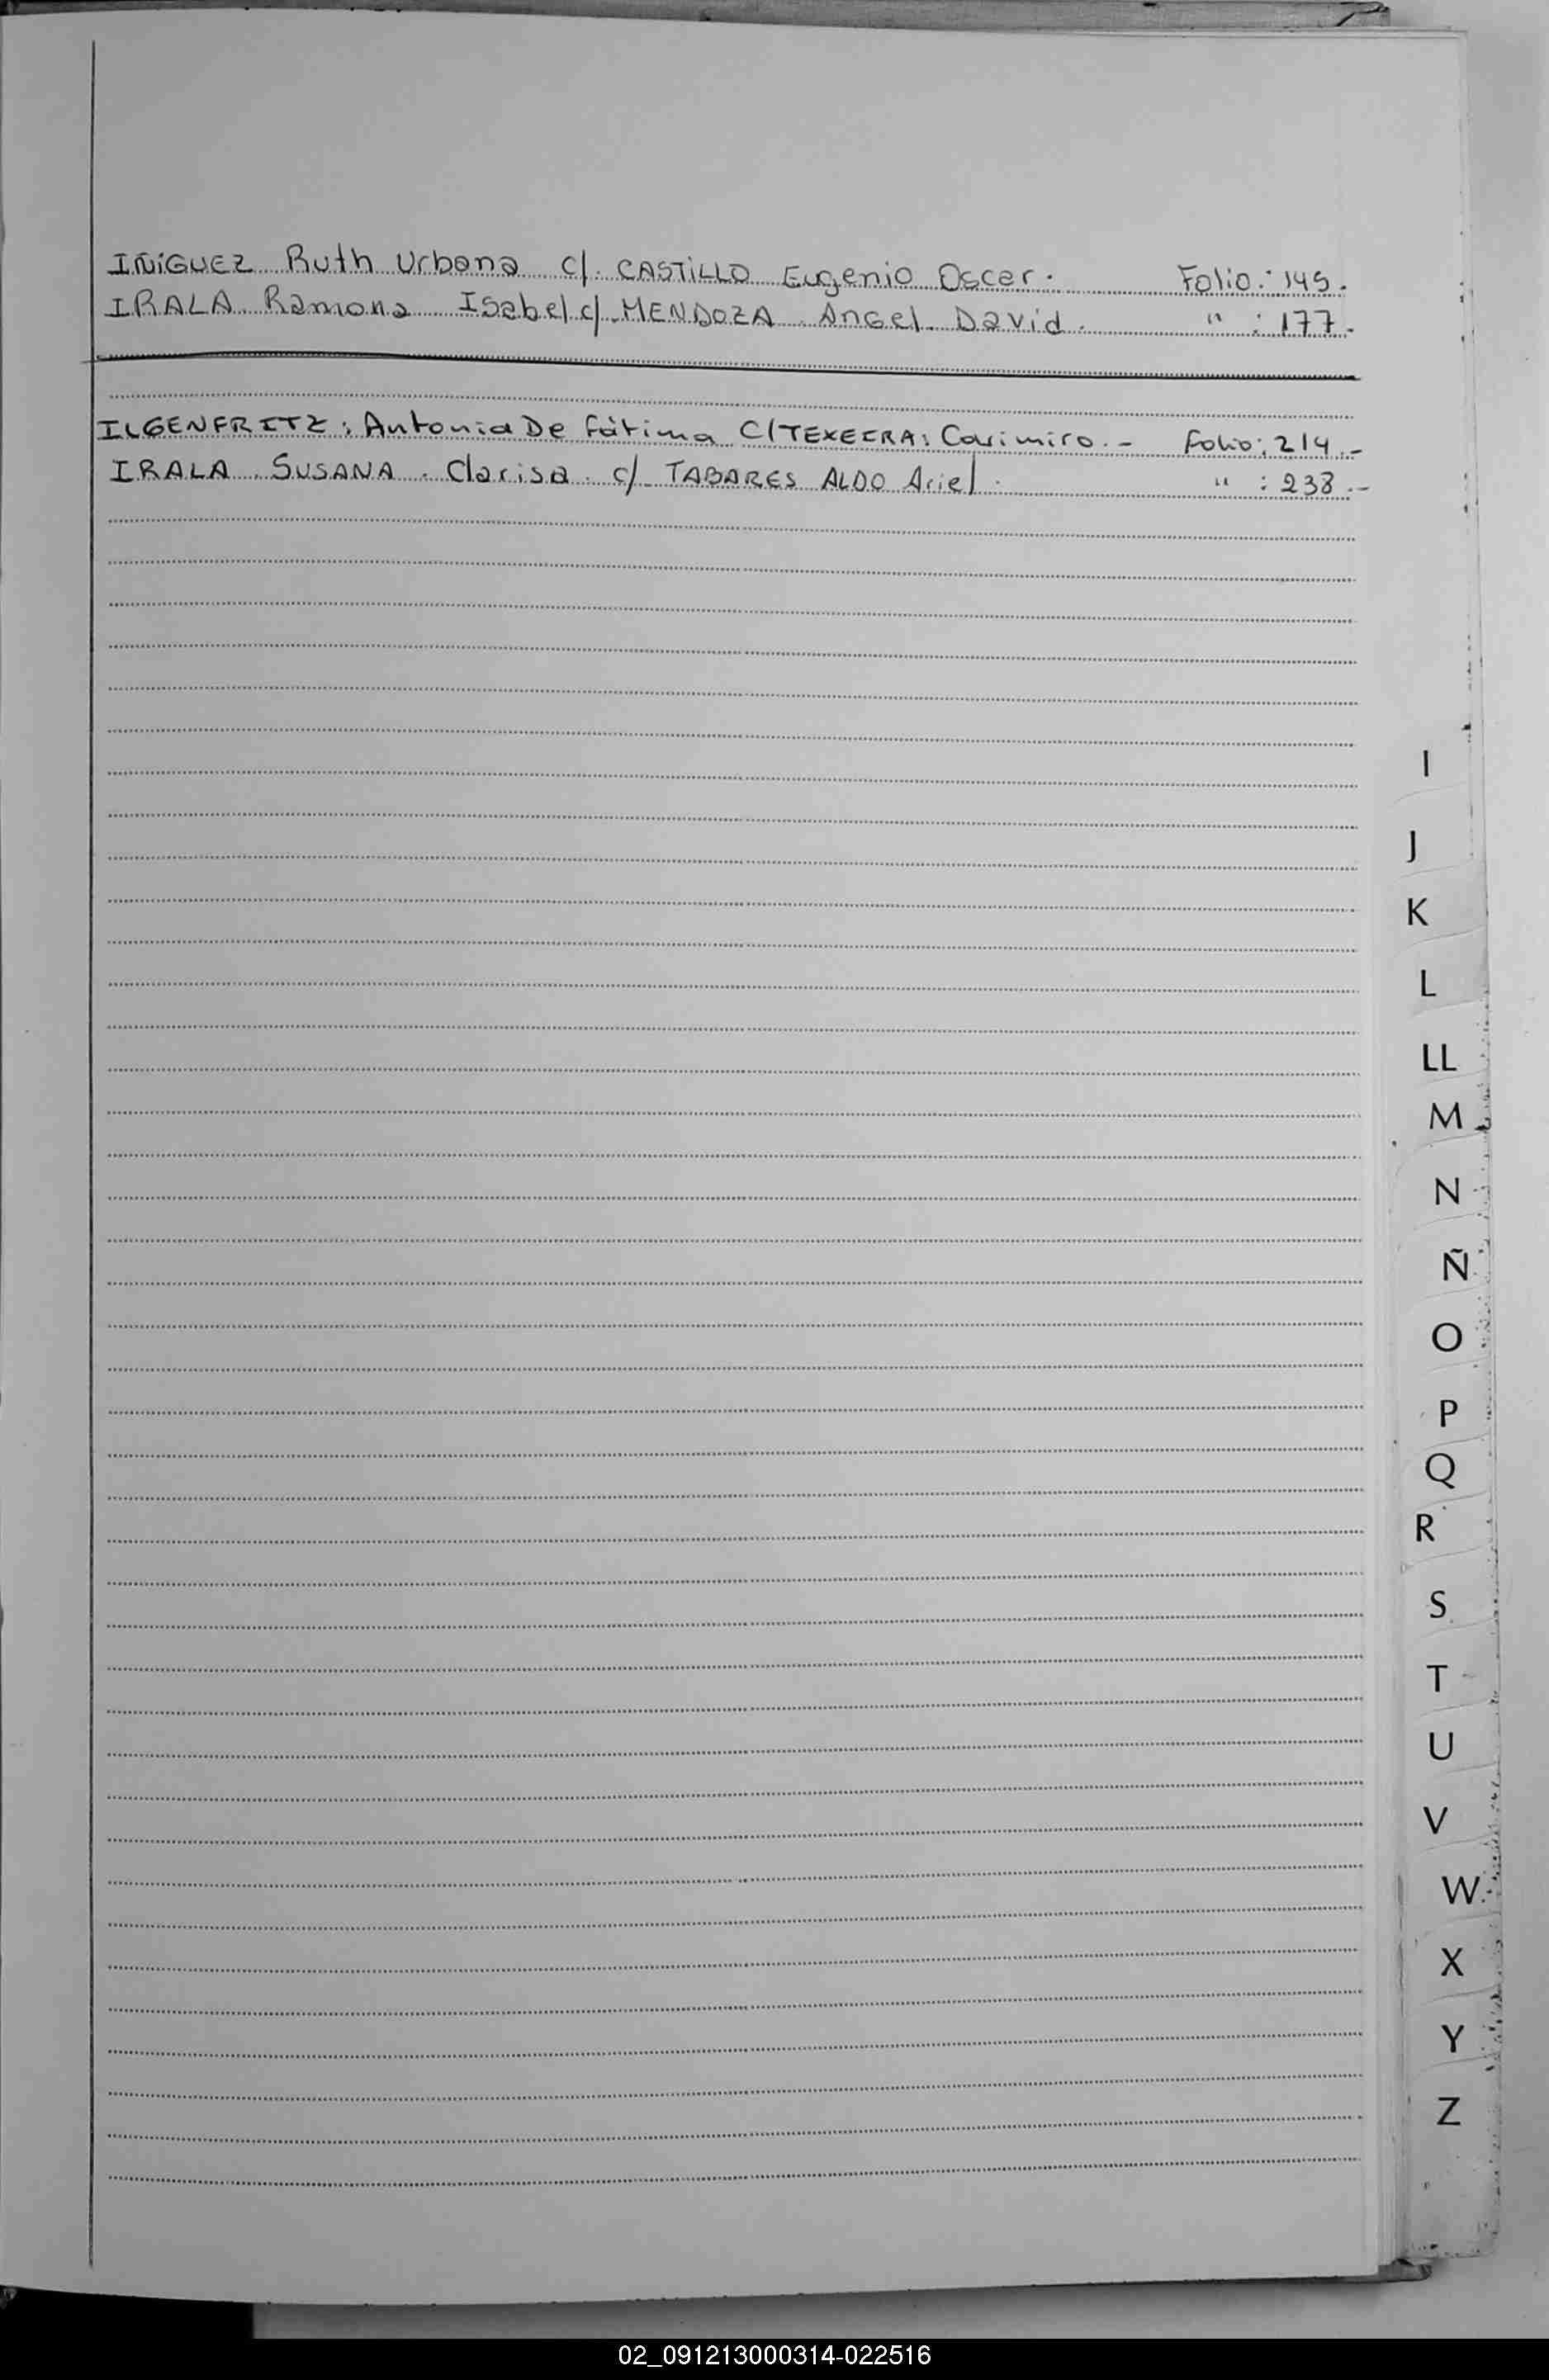 IÑIGUEZ Ruth Urbana c/. CASTILLO Eugenio Oscar. Folio: 145.
IRALA Ramona Isabel c/. MENDOZA Angel David. " : 177.
ILGENFRITZ: Antonia De Fátima C/TEXEIRA: Casimiro.- Folio: 214.-
IRALA SUSANA. Clarisa. c/ TABARES ALDO Ariel. " : 238.-
I
J
K
L
LL
M
N
Ñ
O
P
Q
R
S
T
U
V
W
X
Y
Z
02_091213000314-022516